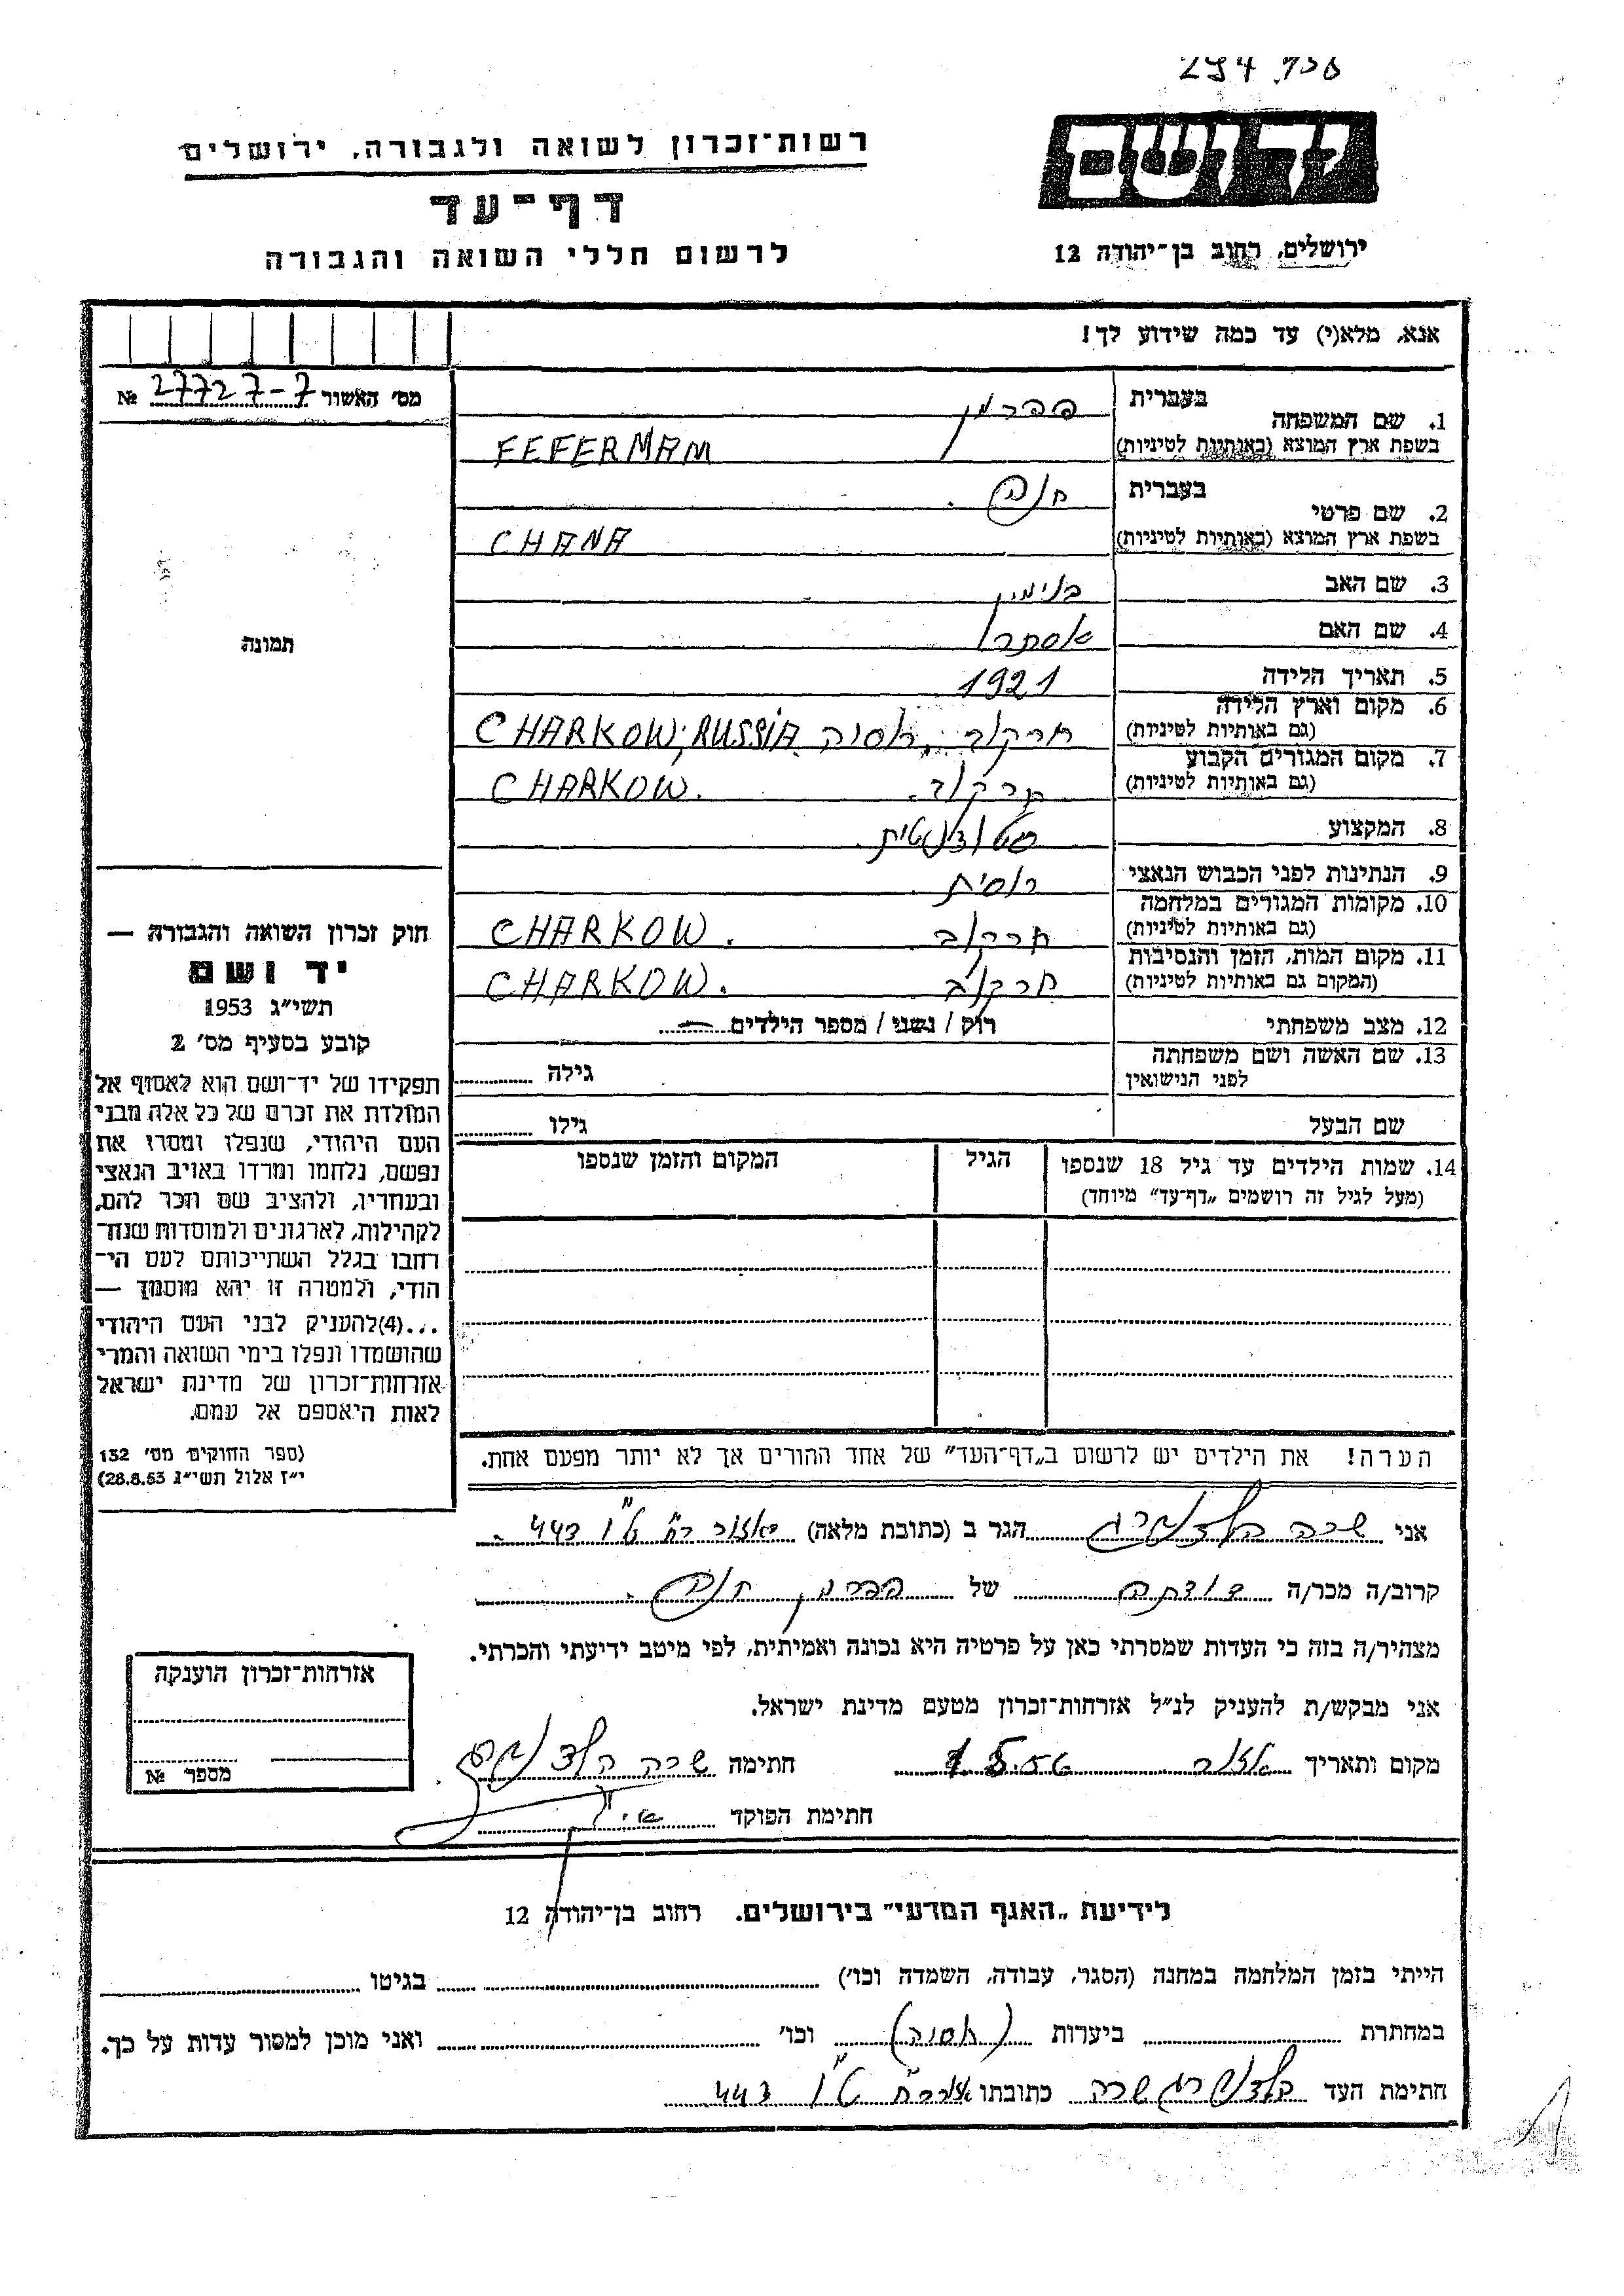 294 736
יד ושם
ירושלים, רחוב בן־יהודה 12
רשות־זכרון לשואה ולגבורה, ירושלים
דף־עד
לרשום חללי השואה והגבורה
אנא, מלא(י) עד כמה שידוע לך!
מס׳ האשור 27727-7 №
1. שם המשפחה
בעברית פפרמן
בשפת ארץ המוצא (באותיות לטיניות) FEFERMAN
2. שם פרטי
בעברית חנה.
בשפת ארץ המוצא (באותיות לטיניות) CHANA
3. שם האב בנימין
4. שם האם אסתר
5. תאריך הלידה 1921
6. מקום וארץ הלידה
(גם באותיות לטיניות) חרקוב, רוסיה CHARKOW, RUSSIA
7. מקום המגורים הקבוע
(גם באותיות לטיניות) חרקוב. CHARKOW.
8. המקצוע סטודנטית
9. הנתינות לפני הכבוש הנאצי רוסית
10. מקומות המגורים במלחמה
(גם באותיות לטיניות) חרקוב CHARKOW.
11. מקום המות, הזמן והנסיבות
(המקום גם באותיות לטיניות) חרקוב CHARKOW.
12. מצב משפחתי רוק / נשוי / מספר הילדים —
13. שם האשה ושם משפחתה
לפני הנישואין גילה
שם הבעל גילו
14. שמות הילדים עד גיל 18 שנספו הגיל המקום והזמן שנספו
(מעל לגיל זה רושמים „דף־עד” מיוחד)
תמונה
חוק זכרון השואה והגבורה —
יד ושם
תשי״ג 1953
קובע בסעיף מס׳ 2
תפקידו של יד־ושם הוא לאסוף אל
המולדת את זכרם של כל אלה מבני
העם היהודי, שנפלו ומסרו את
נפשם, נלחמו ומרדו באויב הנאצי
ובעוזריו, ולהציב שם וזכר להם,
לקהילות, לארגונים ולמוסדות שנח־
רחבו בגלל השתייכותם לעם הי־
הודי, ולמטרה זו יהא מוסמך —
...(4)להעניק לבני העם היהודי
שהושמדו ונפלו בימי השואה והמרי
אזרחות־זכרון של מדינת ישראל
לאות היאספם אל עמם.
(ספר החוקים מס׳ 132
י״ז אלול תשי״ג 28.8.53)
הערה! את הילדים יש לרשום ב„דף־העד” של אחד ההורים אך לא יותר מפעם אחת.
אני שרה הגר ב (כתובת מלאה) אזור 443
קרוב/ה מכר/ה דודתה של פפרמן חנה.
מצהיר/ה בזה כי העדות שמסרתי כאן על פרטיה היא נכונה ואמיתית, לפי מיטב ידיעתי והכרתי.
אני מבקש/ת להעניק לנ״ל אזרחות־זכרון מטעם מדינת ישראל.
מקום ותאריך אזור חתימה שרה
חתימת הפוקד
אזרחות־זכרון הוענקה
מספר №
לידיעת „האגף המדעי” בירושלים, רחוב בן־יהודה 12
הייתי בזמן המלחמה במחנה (הסגר, עבודה, השמדה וכו׳) בגיטו
במחתרת ביערות (רוסיה) וכו׳ ואני מוכן למסור עדות על כך.
חתימת העד שרה כתובתו 443